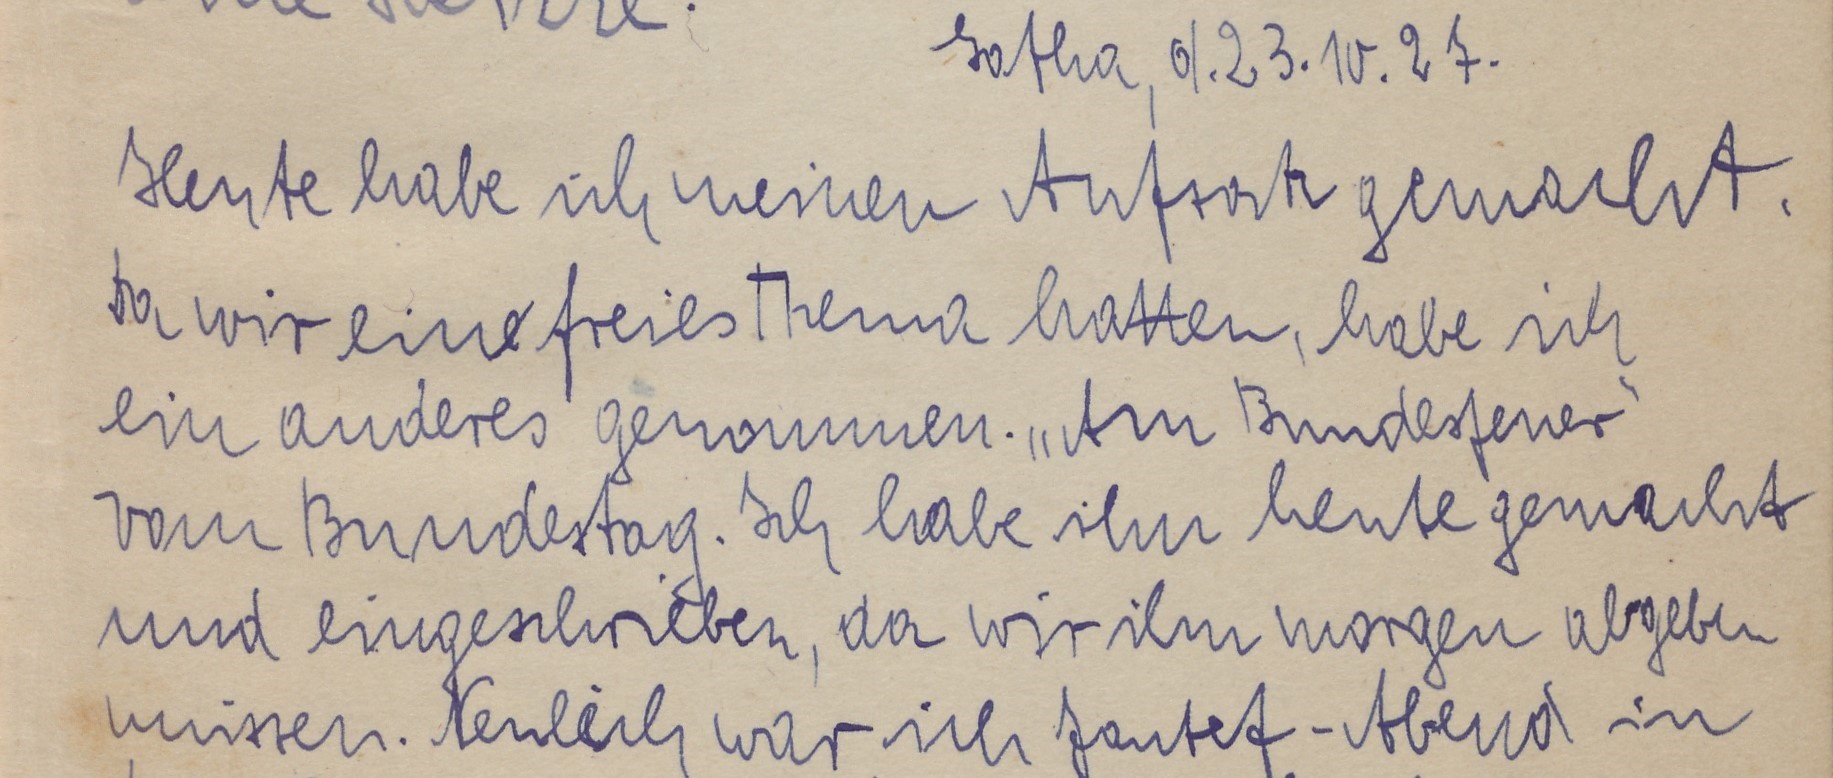 Gotha, d. 23. 10. 27.
Heute habe ich meinen Aufsatz gemacht.
Da wir eine freies Thema hatten, habe ich
ein anderes genommen. „Am Bundesfeuer“
vom Bundestag. Ich habe ihn heute gemacht
und eingeschrieben, da wir ihn morgen abgeben
müssen. Neulich war ich - Abend in